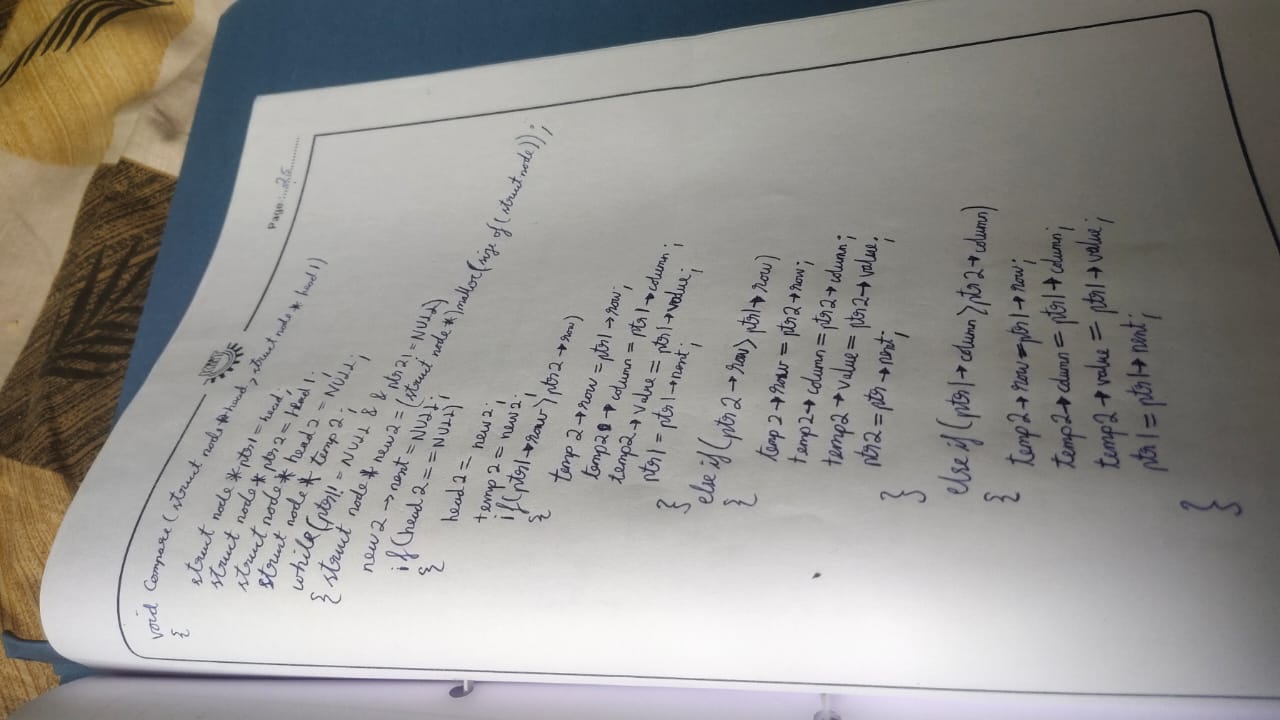 Page:... 25
void Compare (struct node *head, struct node * head1)
{
struct node *ptr1 = head;
struct node * ptr2 = head1;
struct node * head2 = NULL;
struct node * temp2;
while (ptr1! = NULL && ptr2! = NULL)
{ struct node * new2 = (struct node *) malloc (size of (struct node));
new2 → next = NULL;
if (head2 == NULL)
{
head2 = new2;
temp2 = new2;
if (ptr1→row > ptr2→row)
{
temp2→row = ptr1→row;
temp2→column = ptr1→column;
temp2→value = ptr1→value;
ptr1 = ptr1→next;
}
else if (ptr2→row > ptr1→row)
{
temp2→row = ptr2→row;
temp2→column = ptr2→column;
temp2→value = ptr2→value;
ptr2 = ptr→next;
}
else if (ptr1→column > ptr2→column)
{
temp2→row = ptr1→row;
temp2→column = ptr1→column;
temp2→value = ptr1→value;
ptr1 = ptr1→next;
}